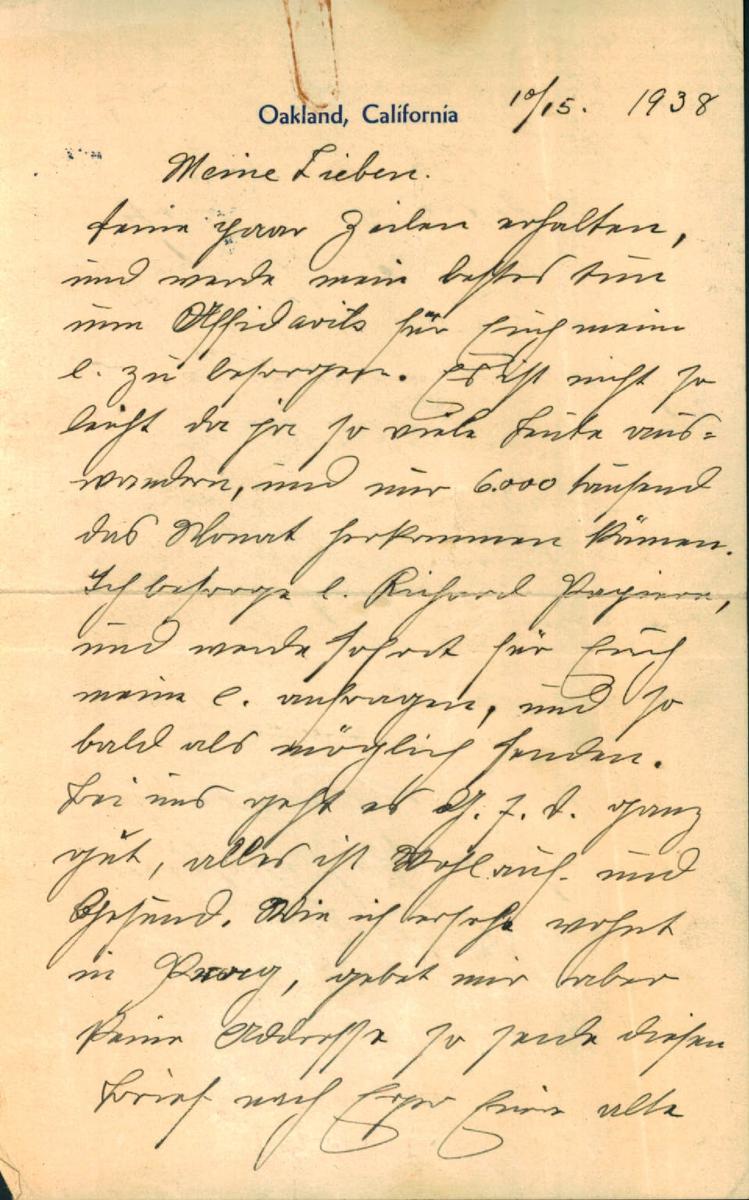 Oakland, California 10/15. 1938
Meine Lieben.
Deine paar Zeilen erhalten,
und werde mein bestes tun
um Affidavits für Euch meine
l. zu besorgen. Es ist nicht so
leicht da ja so viele Leute aus=
wandern, und nur 6.000 tausend
das Monat herkommen können.
Ich besorge l. Richard Papiere,
und werde sofort für Euch
meine l. anfragen, und so
bald als möglich senden.
Bei uns geht es G. s. d. ganz
gut, alles ist Wohlauf. und
Gesund. Wie ich ersehe wohnt
in Prag, gebet mir aber
keine Addresse so sende diesen
Brief nach Eger Eure alte